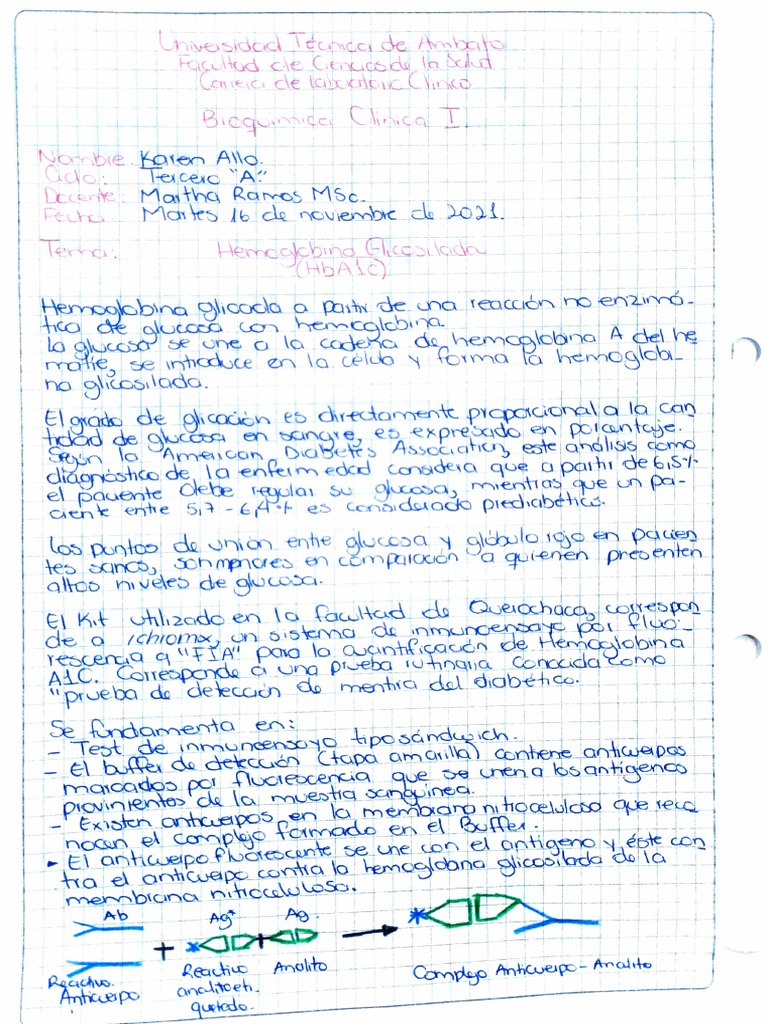 Universidad Técnica de Ambato
Facultad de Ciencias de la Salud
Carrera de Laboratorio Clínico
Bioquímica Clínica I
Nombre: Karen Allo.
Ciclo: Tercero "A".
Docente: Martha Ramos MSc.
Fecha: Martes 16 de noviembre de 2021.
Tema: Hemoglobina Glicosilada
(HbA1c)
Hemoglobina glicada a partir de una reacción no enzimá-
tica de glucosa con hemoglobina.
La glucosa se une a la cadena de hemoglobina A del he
matíe, se introduce en la célula y forma la hemoglobi-
na glicosilada.
El grado de glicación es directamente proporcional a la can
tidad de glucosa en sangre, es expresado en porcentaje.
Según la American Diabetes Association, este análisis como
diagnóstico de la enfermedad considera que a partir de 6,5%
el paciente debe regular su glucosa, mientras que un pa-
ciente entre 5,7 - 6,4% es considerado prediabético.
Los puntos de unión entre glucosa y glóbulo rojo en pacien
tes sanos, son menores en comparación a quienen presenten
altos niveles de glucosa.
El Kit utilizado en la facultad de Querochaca, correspon
de a ichromx, un sistema de inmunoensayo por fluo-
rescencia q "FIA" para la cuantificación de Hemoglobina
A1C. Corresponde a una prueba rutinaria conocida como
"prueba de detección de mentira del diabético.
Se fundamenta en:
- Test de inmunoensayo tipo sándwich.
- El buffer de detección (tapa amarilla) contiene anticuerpos
marcados por fluorescencia que se unen a los antígenos
provinientes de la muestra sanguínea.
- Existen anticuerpos en la membrana nitrocelulosa que reco
nocen el complejo formado en el Buffer.
- El anticuerpo fluorescente se une con el antígeno y, éste con
tra el anticuerpo contra la hemoglobina glicosilada de la
membrana nitrocelulosa.
Ab Ag* Ag
+
Reactivo Anticuerpo
Reactivo analito eti- quetado.
Analito
Complejo Anticuerpo - Analito